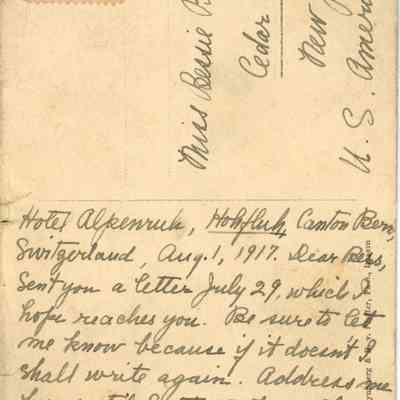 Miss Bessie
Cedar
New
U. S. Ameri
Hotel Alpenruh, Hohfluh, Canton Bern,
Switzerland, Aug. 1, 1917. Dear Bess,
Sent you a letter July 29, which I
hope reaches you. Be sure to let
me know because if it doesn't I
shall write again. Address me